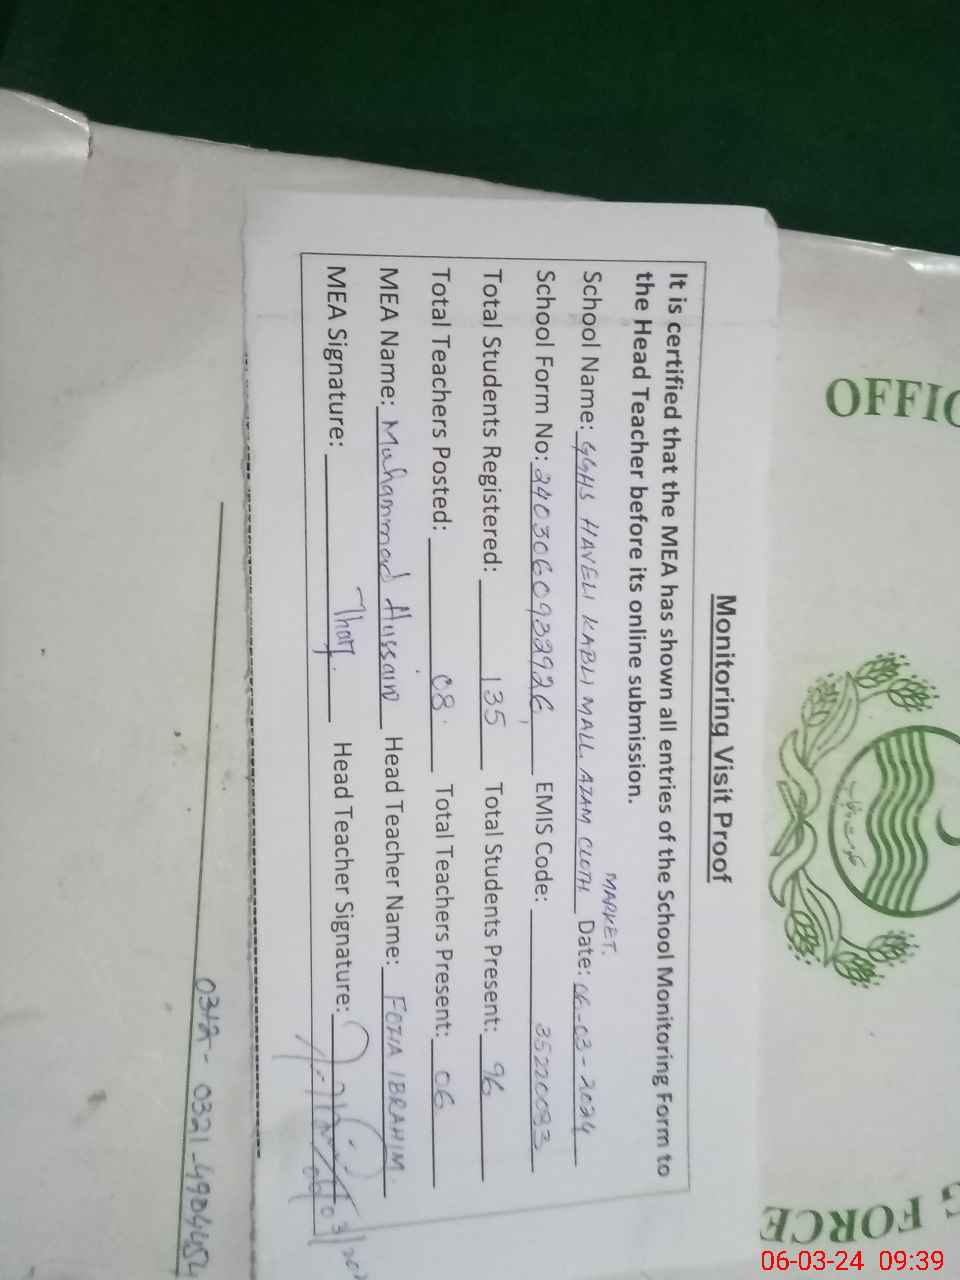 OFFIC
FORCE
Monitoring Visit Proof
It is certified that the MEA has shown all entries of the School Monitoring Form to
the Head Teacher before its online submission.
MARKET.
School Name: GGHS HAVELI KABLI MALL, AZAM CLOTH Date: 06-03-2024
School Form No: 2403060932926 EMIS Code: 35220093
Total Students Registered: 135 Total Students Present: 96
Total Teachers Posted: 08 Total Teachers Present: 06
MEA Name: Muhammad Hussain Head Teacher Name: FOZIA IBRAHIM.
MEA Signature: Head Teacher Signature:
06-03-24 09:39